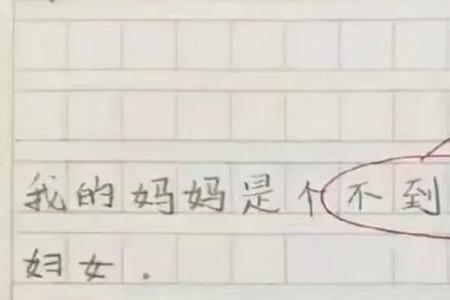 我的妈妈是个不到
妇女.